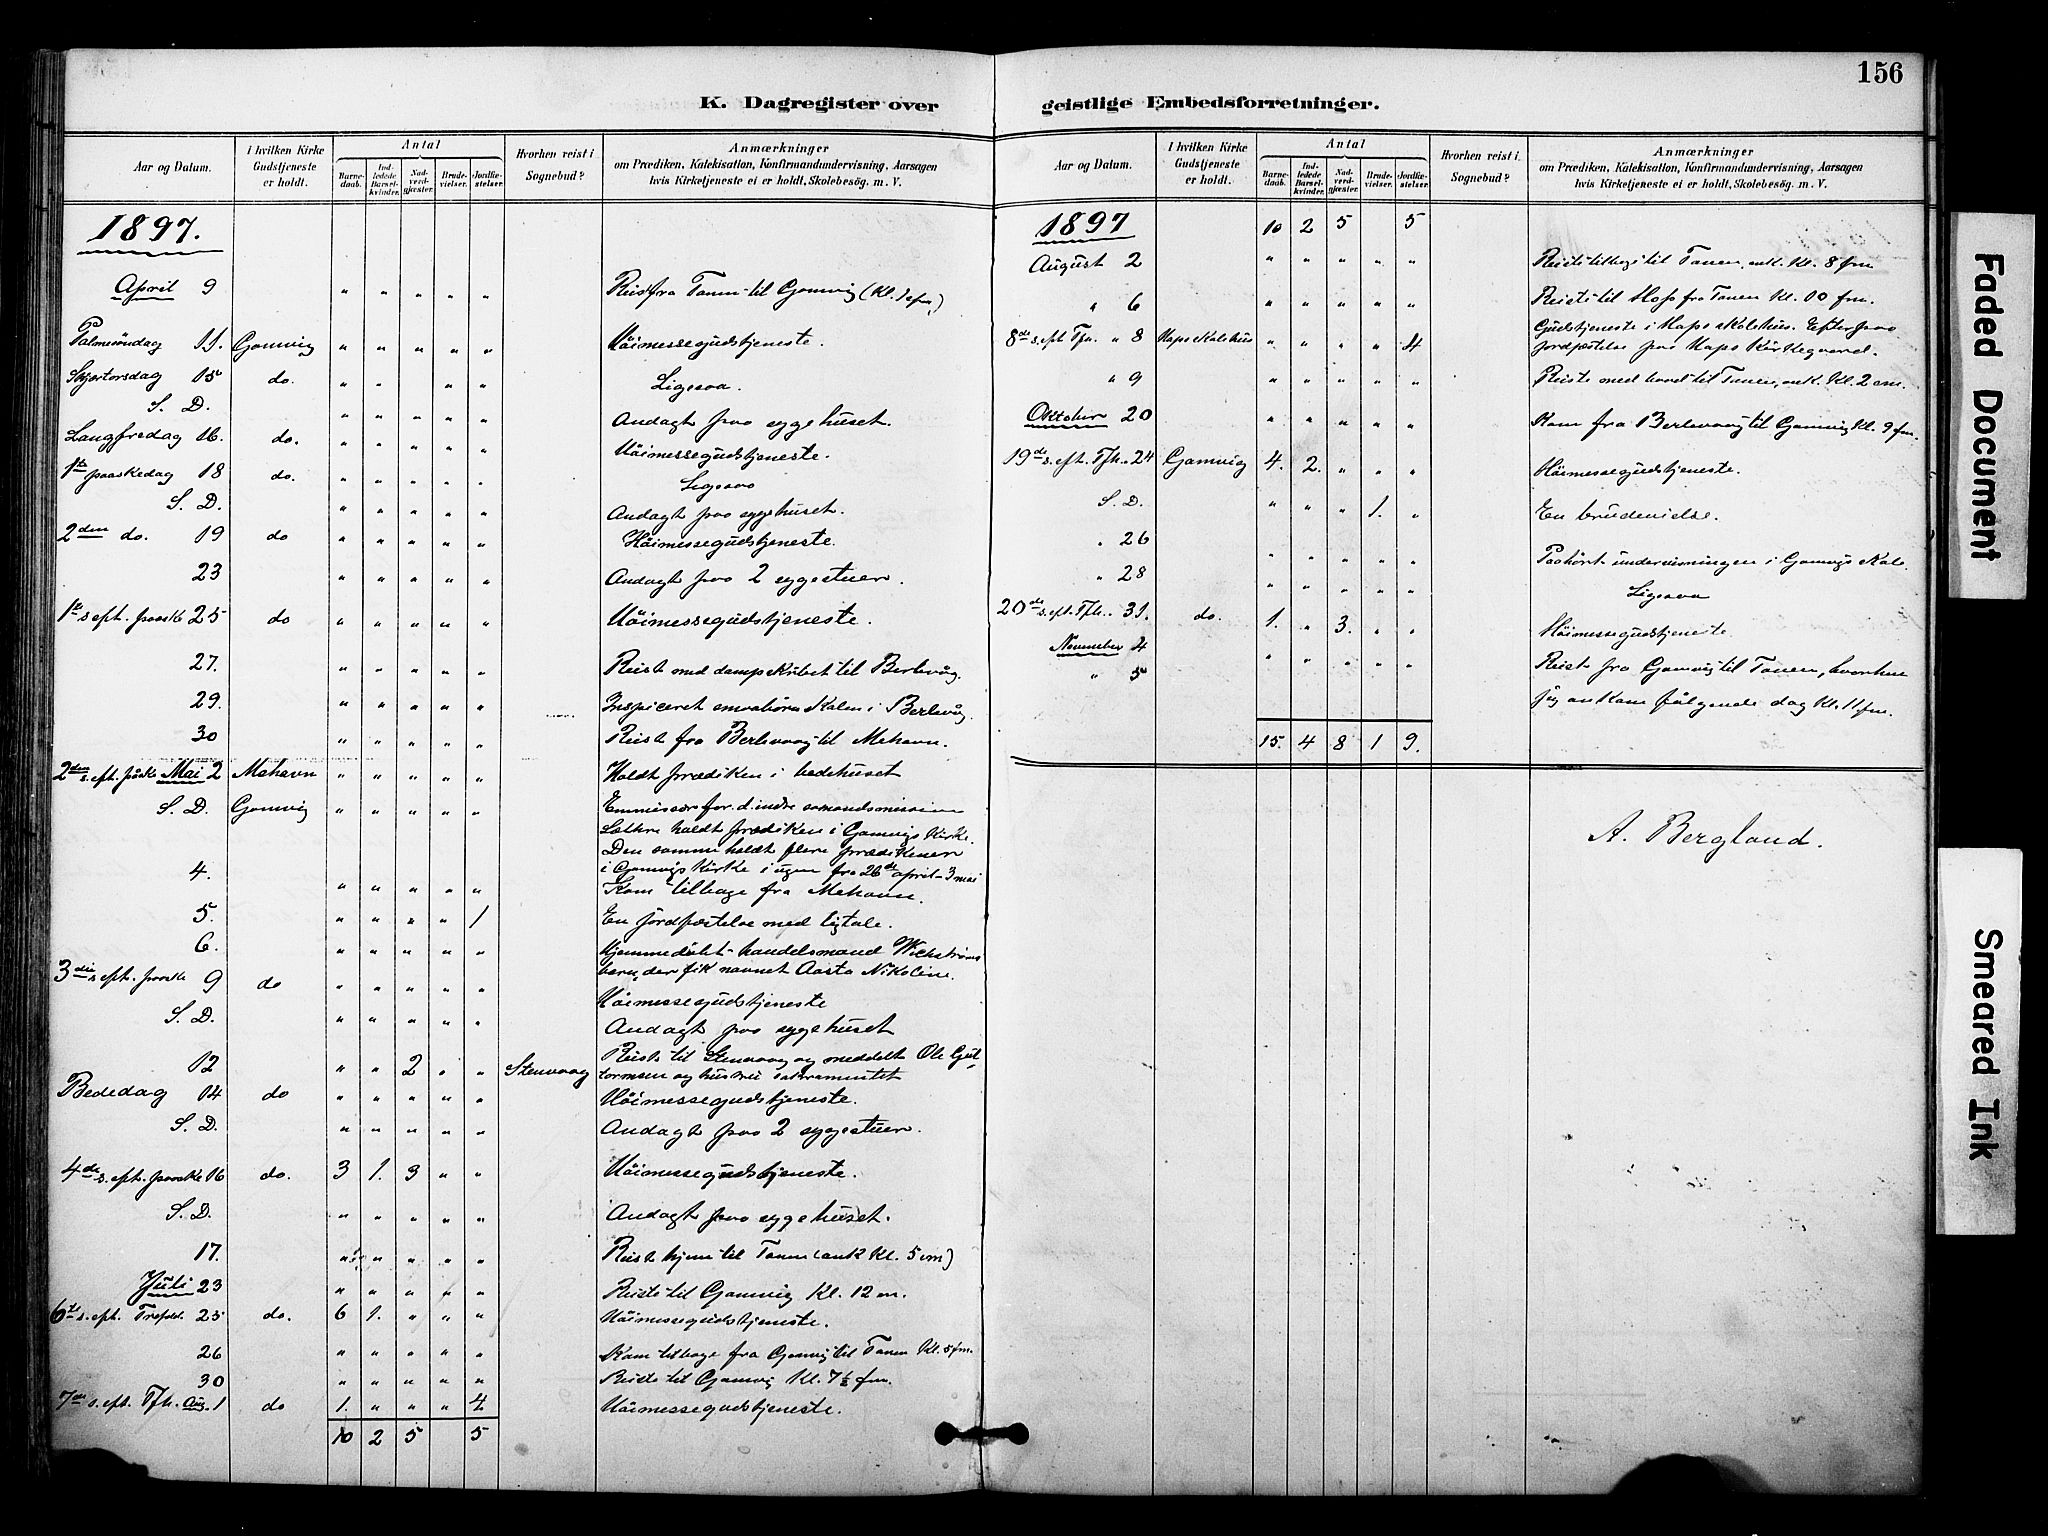 156
K. Dagregister over
geistlige Embedsforretninger.
Aar og Datum.
I hvilken Kirke Gudstjeneste er holdt.
Antal
Barnedaab.
Indledede Barselkvinder.
Nadverdgjester.
Brudevielser.
Jordfæstelser.
Hvorhen reist i Sognebud?
Anmærkninger
om Prædiken, Katekisation, Konfirmandundervisning, Aarsagen
hvis Kirketjeneste ei er holdt, Skolebesøg. m. V.
1897.
April 9 " " " " " Reist fra Tanen til Gamvig (Kl. 1 efm.)
Palmesöndag 11. Gamvig " " " " " Höimessegudstjeneste.
Skjærtorsdag 15 do. " " " " Ligesaa.
S. D. " " " " " Andagt paa sygehuset.
Langfredag 16. do. " " " " " Höimessegudstjeneste.
1ste paaskedag 18 do. " " " " " Ligesaa
S. D. " " " " " Andagt paa sygehuset.
2den do. 19 do " " " " " Höimessegudstjeneste.
23 " " " " " Andagt paa 2 sygestuer.
1ste s. eft. paaske 25 do " " " " " Höimessegudstjeneste.
27. " " " " " Reist med dampskibet til Berlevåg.
29. " " " " " Inspiceret smaabörnskolen i Berlevåg.
30 " " " " " Reist fra Berlevaag til Mehavn.
2den s. eft. påske Mai 2 Mehavn " " " " " Holdt prædiken i bedehuset
S. D. Gamvig " " " " " Emmissær for d. indre sömandsmission
Lethre holdt prædiken i Gamvigs Kirke.
Den samme holdt flere prædikener
i Gamvigs Kirke i ugen fra 26de april - 3 mai
4. " " " " " Kom tilbage fra Mehavn.
5. " " " " 1 En jordfæstelse med ligtale.
6. " " " " " Hjemmedöbt handelsmand Wickströms
barn, der fik navnet Aasta Nikoline.
3die s. eft. paaske 9 do " " " " " Höimessegudstjeneste
S. D. " " " " " Andagt paa sygehuset
12 " " 2 " " Stenvaag Reist til Stenvaag og meddelt Ole Gut-
tormsen og hustru sakramentet
Bededag 14 do " " " " " Höimessegudstjeneste.
S. D. " " " " " Andagt paa 2 sygestuer.
4de s. eft. paaske 16 do. 3 1. 3 " " Höimessegudstjeneste.
S. D. " " " " " Andagt paa sygehuset.
17. " " " " " Reist hjem til Tanen (ank Kl. 5 em)
Juli 23 " " " " " Reiste til Gamvig Kl. 12 em.
6te s. eft. Trefold. 25 do. 6 1. " " " Höimessegudstjeneste.
26 " " " " " Kom tilbage fra Gamvig til Tanen Kl. 5 fm.
30 " " " " " Reiste til Gamvig Kl. 7½ fm.
7de s. eft. Tfh. Aug. 1 do 1. " " " 4 Höimessegudstjeneste.
10 2 5 5
Aar og Datum.
I hvilken Kirke Gudstjeneste er holdt.
Antal
Barnedaab.
Indledede Barselkvinder.
Nadverdgjester.
Brudevielser.
Jordfæstelser.
Hvorhen reist i Sognebud?
Anmærkninger
om Prædiken, Katekisation, Konfirmandundervisning, Aarsagen
hvis Kirketjeneste ei er holdt, Skolebesøg. m. V.
1897 10 2 5 5
August 2 " " " " " Reiste tilbage til Tanen, ank. Kl. 8 fm
" 6 " " " " " Reiste til Hops fra Tanen Kl. 10 fm.
8de s. eft Tfh. " 8 Hops Skolehus " " " " 4 Gudstjeneste i Hops skolehus. Efterpaa
jordfæstelse paa Hops Kirkegaard.
" 9 " " " " " Reiste med baad til Tanen, ank. Kl. 2 em.
Oktober 20 " " " " " Kom fra Berlevaag til Gamvig Kl. 9 fm.
19de s. eft. Tfh. " 24 Gamvig 4. 2. " " " Höimessegudstjeneste.
S. D. " " " 1. " En brudevielse.
" 26 " " " " " Paahört undervisningen i Gamvigs Skole.
" 28 " " " " " Ligesaa
20de s. eft. Tfh. " 31. do. 1. " 3. " " Höimessegudstjeneste
November 4 " " " " " Reist fra Gamvig til Tanen, hvorhen
" 5 jeg ankom fölgende dag Kl. 11 fm.
15. 4 8 1 9.
A. Bergland.
Faded Document
Smeared Ink